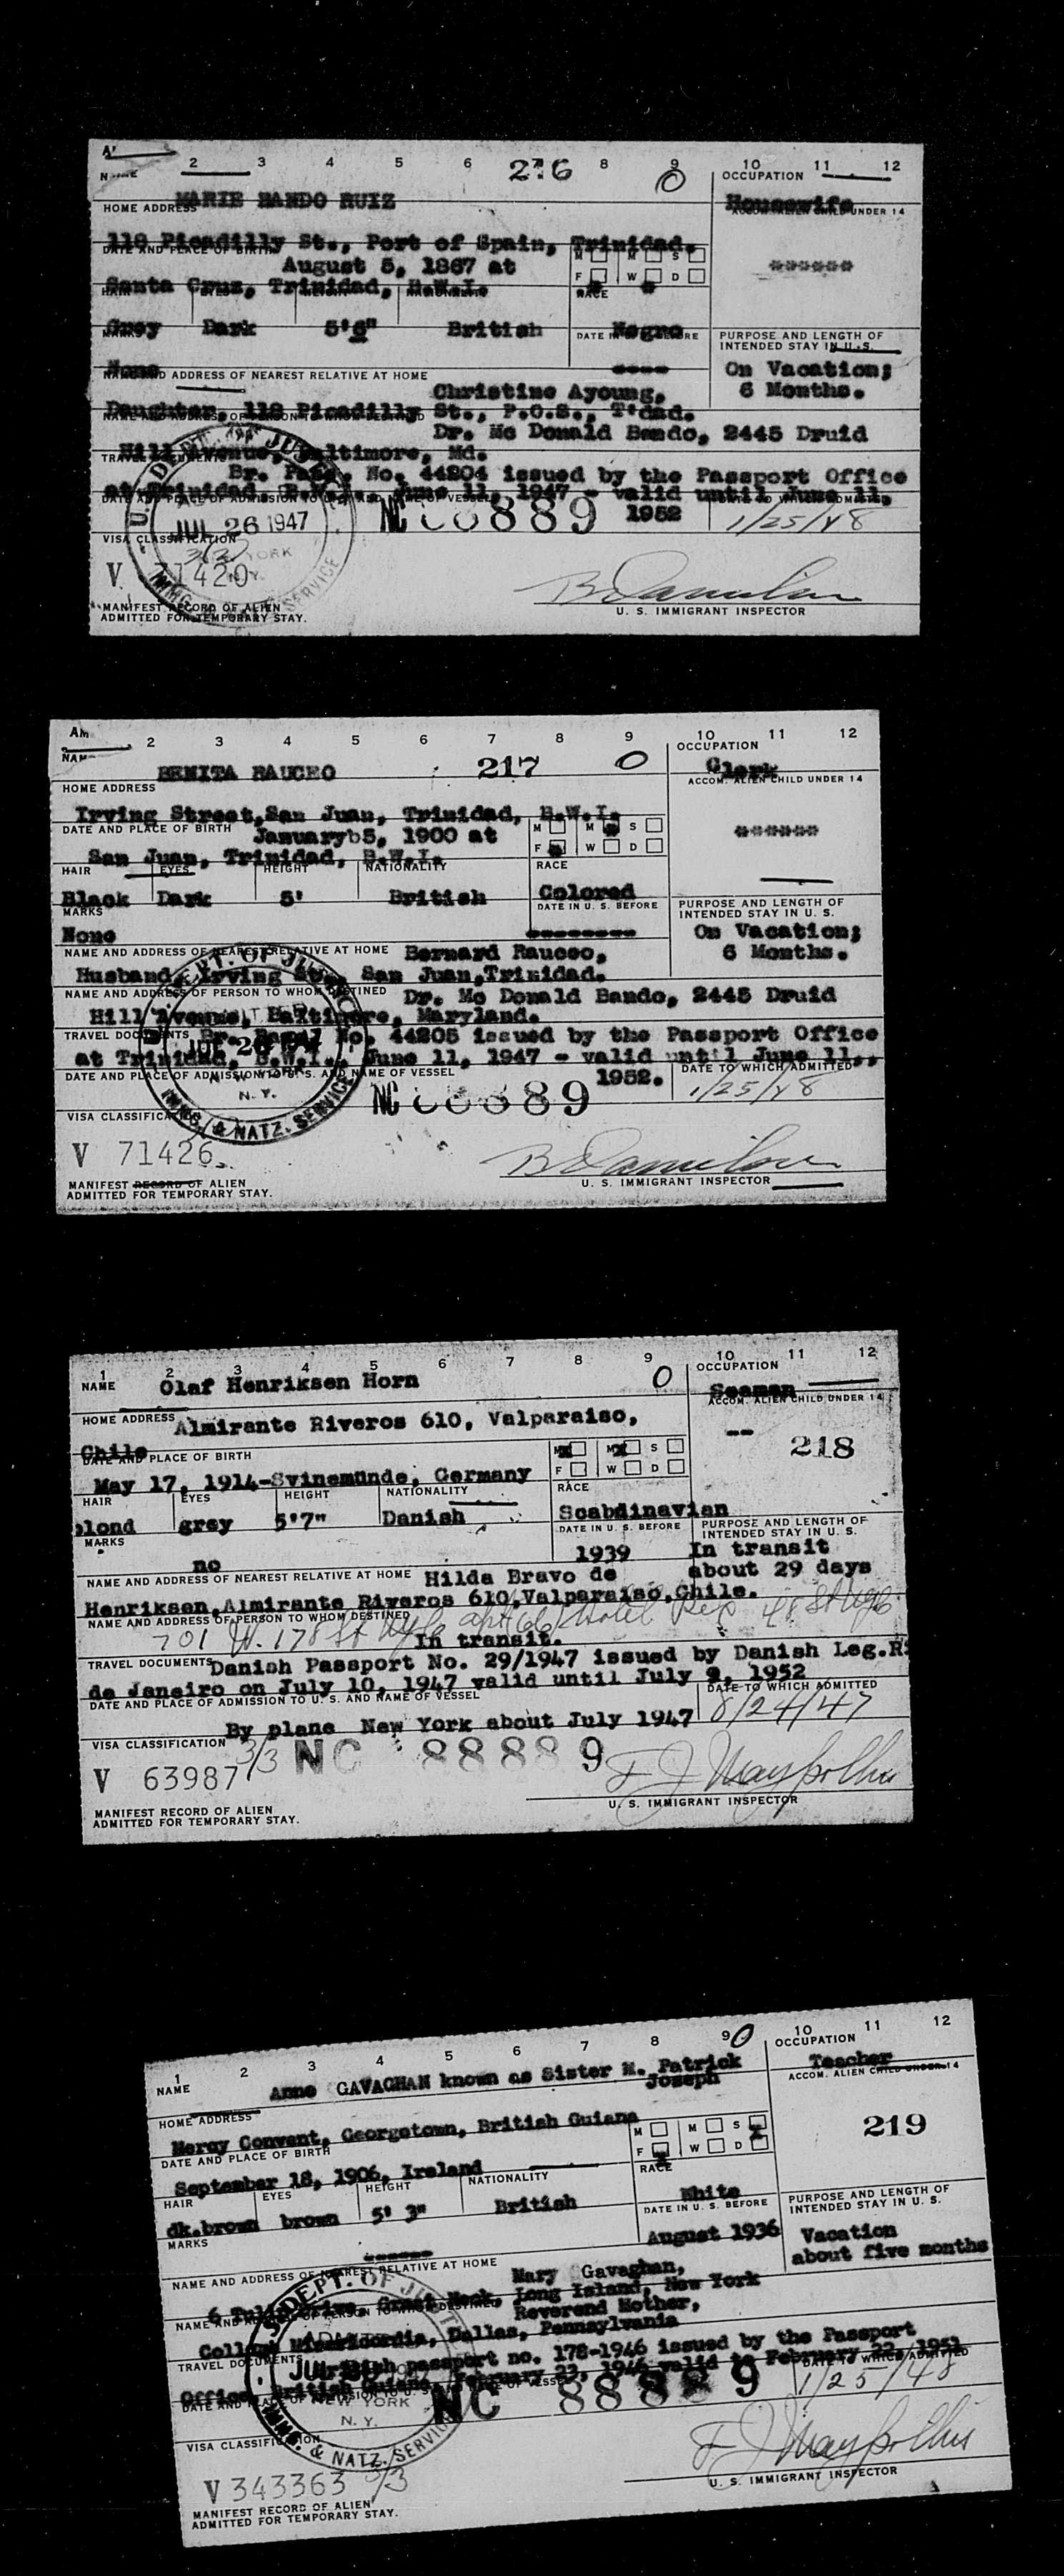 2 3 4 5 6 216 8 9 10 11 12
OCCUPATION
MARIE BANDO RUIZ
Housewife
HOME ADDRESS
ACCOM. ALIEN CHILD UNDER 14
118 Picadilly St., Port of Spain, Trinidad.
DATE AND PLACE OF BIRTH
M M S
August 5, 1867 at
******
F W D
Santa Cruz, Trinidad, B.W.I.
HAIR EYES HEIGHT NATIONALITY RACE
Grey Dark 5'6" British Negro
MARKS
DATE IN U. S. BEFORE
PURPOSE AND LENGTH OF
INTENDED STAY IN U.S.
None
On Vacation;
NAME AND ADDRESS OF NEAREST RELATIVE AT HOME
6 Months.
Christine Ayoung,
Daughter, 118 Picadilly St., P.O.S., T'dad.
NAME AND ADDRESS OF PERSON TO WHOM DESTINED
Dr. Mc Donald Bando, 2445 Druid
Hill Avenue, Baltimore, Md.
TRAVEL DOCUMENTS
Br. Pass. No. 44204 issued by the Passport Office
at Trinidad, B.W.I., June 11, 1947 - valid until June 11,
DATE AND PLACE OF ADMISSION TO U. S. AND NAME OF VESSEL
DATE TO WHICH ADMITTED
JUL 26 1947
NC 88889
1952
1/25/48
VISA CLASSIFICATION
3(2)
NEW YORK
N.Y.
V 71420
IMMG. SERVICE
MANIFEST RECORD OF ALIEN
ADMITTED FOR TEMPORARY STAY.
U. S. IMMIGRANT INSPECTOR
2 3 4 5 6 7 8 9 10 11 12
OCCUPATION
BENITA RAUCEO
217
Clerk
HOME ADDRESS
ACCOM. ALIEN CHILD UNDER 14
Irving Street,San Juan, Trinidad, B.W.I.
DATE AND PLACE OF BIRTH
Januaryb5, 1900 at
M M S
******
San Juan, Trinidad, B.W.I.
F W D
HAIR EYES HEIGHT NATIONALITY RACE
Black Dark 5' British Colored
MARKS
DATE IN U. S. BEFORE
PURPOSE AND LENGTH OF
INTENDED STAY IN U. S.
None
On Vacation;
NAME AND ADDRESS OF NEAREST RELATIVE AT HOME
Bernard Rauceo,
6 Months.
Husband, Irving St., San Juan,Trinidad.
NAME AND ADDRESS OF PERSON TO WHOM DESTINED
Dr. Mc Donald Bando, 2445 Druid
Hill Avenue, Baltimore, Maryland.
TRAVEL DOCUMENTS
No. 44205 issued by the Passport Office
at Trinidad, B.W.I., June 11, 1947 - valid until June 11,,
DATE AND PLACE OF ADMISSION TO U. S. AND NAME OF VESSEL
1952.
DATE TO WHICH ADMITTED
N. Y.
NC 88889
1/25/48
VISA CLASSIFICATION
IMMG. & NATZ. SERVICE
V 71426
MANIFEST RECORD OF ALIEN
ADMITTED FOR TEMPORARY STAY.
U. S. IMMIGRANT INSPECTOR
1 2 3 4 5 6 7 8 9 10 11 12
OCCUPATION
NAME
Olaf Henriksen Horn
Seaman
HOME ADDRESS
ACCOM. ALIEN CHILD UNDER 14
Almirante Riveros 610, Valparaiso,
Chile
-- 218
DATE AND PLACE OF BIRTH
M M S
May 17, 1914-Svinemünde, Germany
F W D
HAIR EYES HEIGHT NATIONALITY RACE
blond grey 5'7" Danish Scabdinavian
MARKS
DATE IN U. S. BEFORE
PURPOSE AND LENGTH OF
INTENDED STAY IN U. S.
no
1939
In transit
about 29 days
NAME AND ADDRESS OF NEAREST RELATIVE AT HOME
Hilda Bravo de
Henriksen,Almirante Riveros 610,Valparaiso,Chile.
NAME AND ADDRESS OF PERSON TO WHOM DESTINED
701 W. 178 St
In transit.
TRAVEL DOCUMENTS
Danish Passport No. 29/1947 issued by Danish Leg.
de Janeiro on July 10, 1947 valid until July 9, 1952
DATE AND PLACE OF ADMISSION TO U. S. AND NAME OF VESSEL
DATE TO WHICH ADMITTED
By plane New York about July 1947
8/24/47
VISA CLASSIFICATION
3/3
NC 88889
V 63987
U. S. IMMIGRANT INSPECTOR
MANIFEST RECORD OF ALIEN
ADMITTED FOR TEMPORARY STAY.
1 2 3 4 5 6 7 8 9 10 11 12
OCCUPATION
NAME
Anne GAVAGHAN known as Sister M. Patrick
Joseph
Teacher
HOME ADDRESS
ACCOM. ALIEN CHILD UNDER 14
Mercy Convent, Georgetown, British Guiana
219
DATE AND PLACE OF BIRTH
M M S
September 18, 1906, Ireland
F W D
HAIR EYES HEIGHT NATIONALITY RACE
dk.brown brown 5' 3" British White
MARKS
DATE IN U. S. BEFORE
PURPOSE AND LENGTH OF
INTENDED STAY IN U. S.
August 1936
Vacation
about five months
NAME AND ADDRESS OF NEAREST RELATIVE AT HOME
Mary Gavaghan,
Great Neck, Long Island, New York
NAME AND ADDRESS OF PERSON TO WHOM DESTINED
Reverend Mother,
College Misericordia, Dallas, Pennsylvania
TRAVEL DOCUMENTS
British passport no. 178-1946 issued by the Passport
Office, British Guiana, February 23, 1946 valid to February 22, 1951
DATE AND PLACE OF ADMISSION TO U. S. AND NAME OF VESSEL
DATE TO WHICH ADMITTED
NEW YORK
N. Y.
NC 88889
1/25/48
VISA CLASSIFICATION
IMMG. & NATZ. SERVICE
V 343363 3/3
U. S. IMMIGRANT INSPECTOR
MANIFEST RECORD OF ALIEN
ADMITTED FOR TEMPORARY STAY.